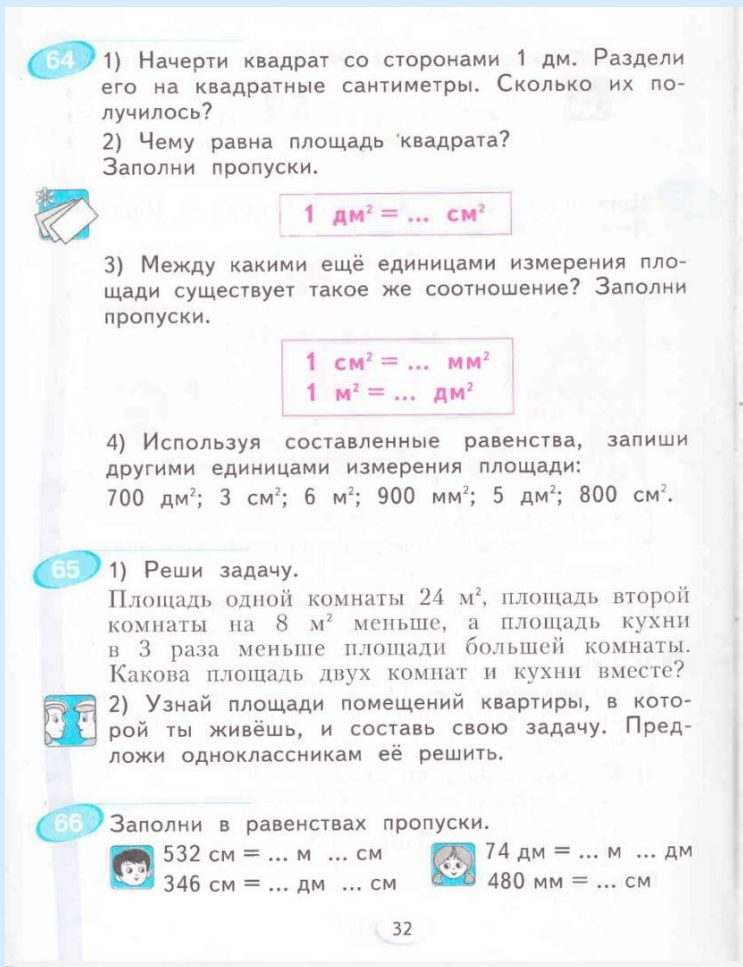 64 1) Начерти квадрат со сторонами 1 дм. Раздели
его на квадратные сантиметры. Сколько их по-
лучилось?
2) Чему равна площадь квадрата?
Заполни пропуски.
1 дм² = ... см²
3) Между какими ещё единицами измерения пло-
щади существует такое же соотношение? Заполни
пропуски.
1 см² = ... мм²
1 м² = ... дм²
4) Используя составленные равенства, запиши
другими единицами измерения площади:
700 дм²; 3 см²; 6 м²; 900 мм²; 5 дм²; 800 см².
65 1) Реши задачу.
Площадь одной комнаты 24 м², площадь второй
комнаты на 8 м² меньше, а площадь кухни
в 3 раза меньше площади большей комнаты.
Какова площадь двух комнат и кухни вместе?
2) Узнай площади помещений квартиры, в кото-
рой ты живёшь, и составь свою задачу. Пред-
ложи одноклассникам её решить.
66 Заполни в равенствах пропуски.
532 см = ... м ... см 74 дм = ... м ... дм
346 см = ... дм ... см 480 мм = ... см
32